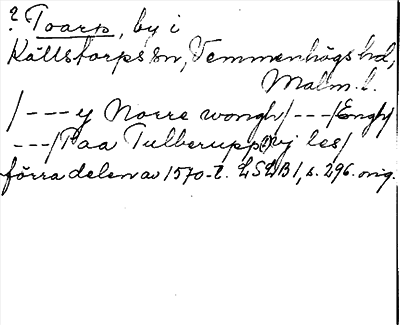 ? Toarp, by i
Källstorps sn, Vemmenhögs hd,
Malm. l.
/---y Norre wongh/---/Engh/
---/Paa Tulberupp(?) vj les/
förra delen av 1570-t. LSLB1, s. 296. orig.